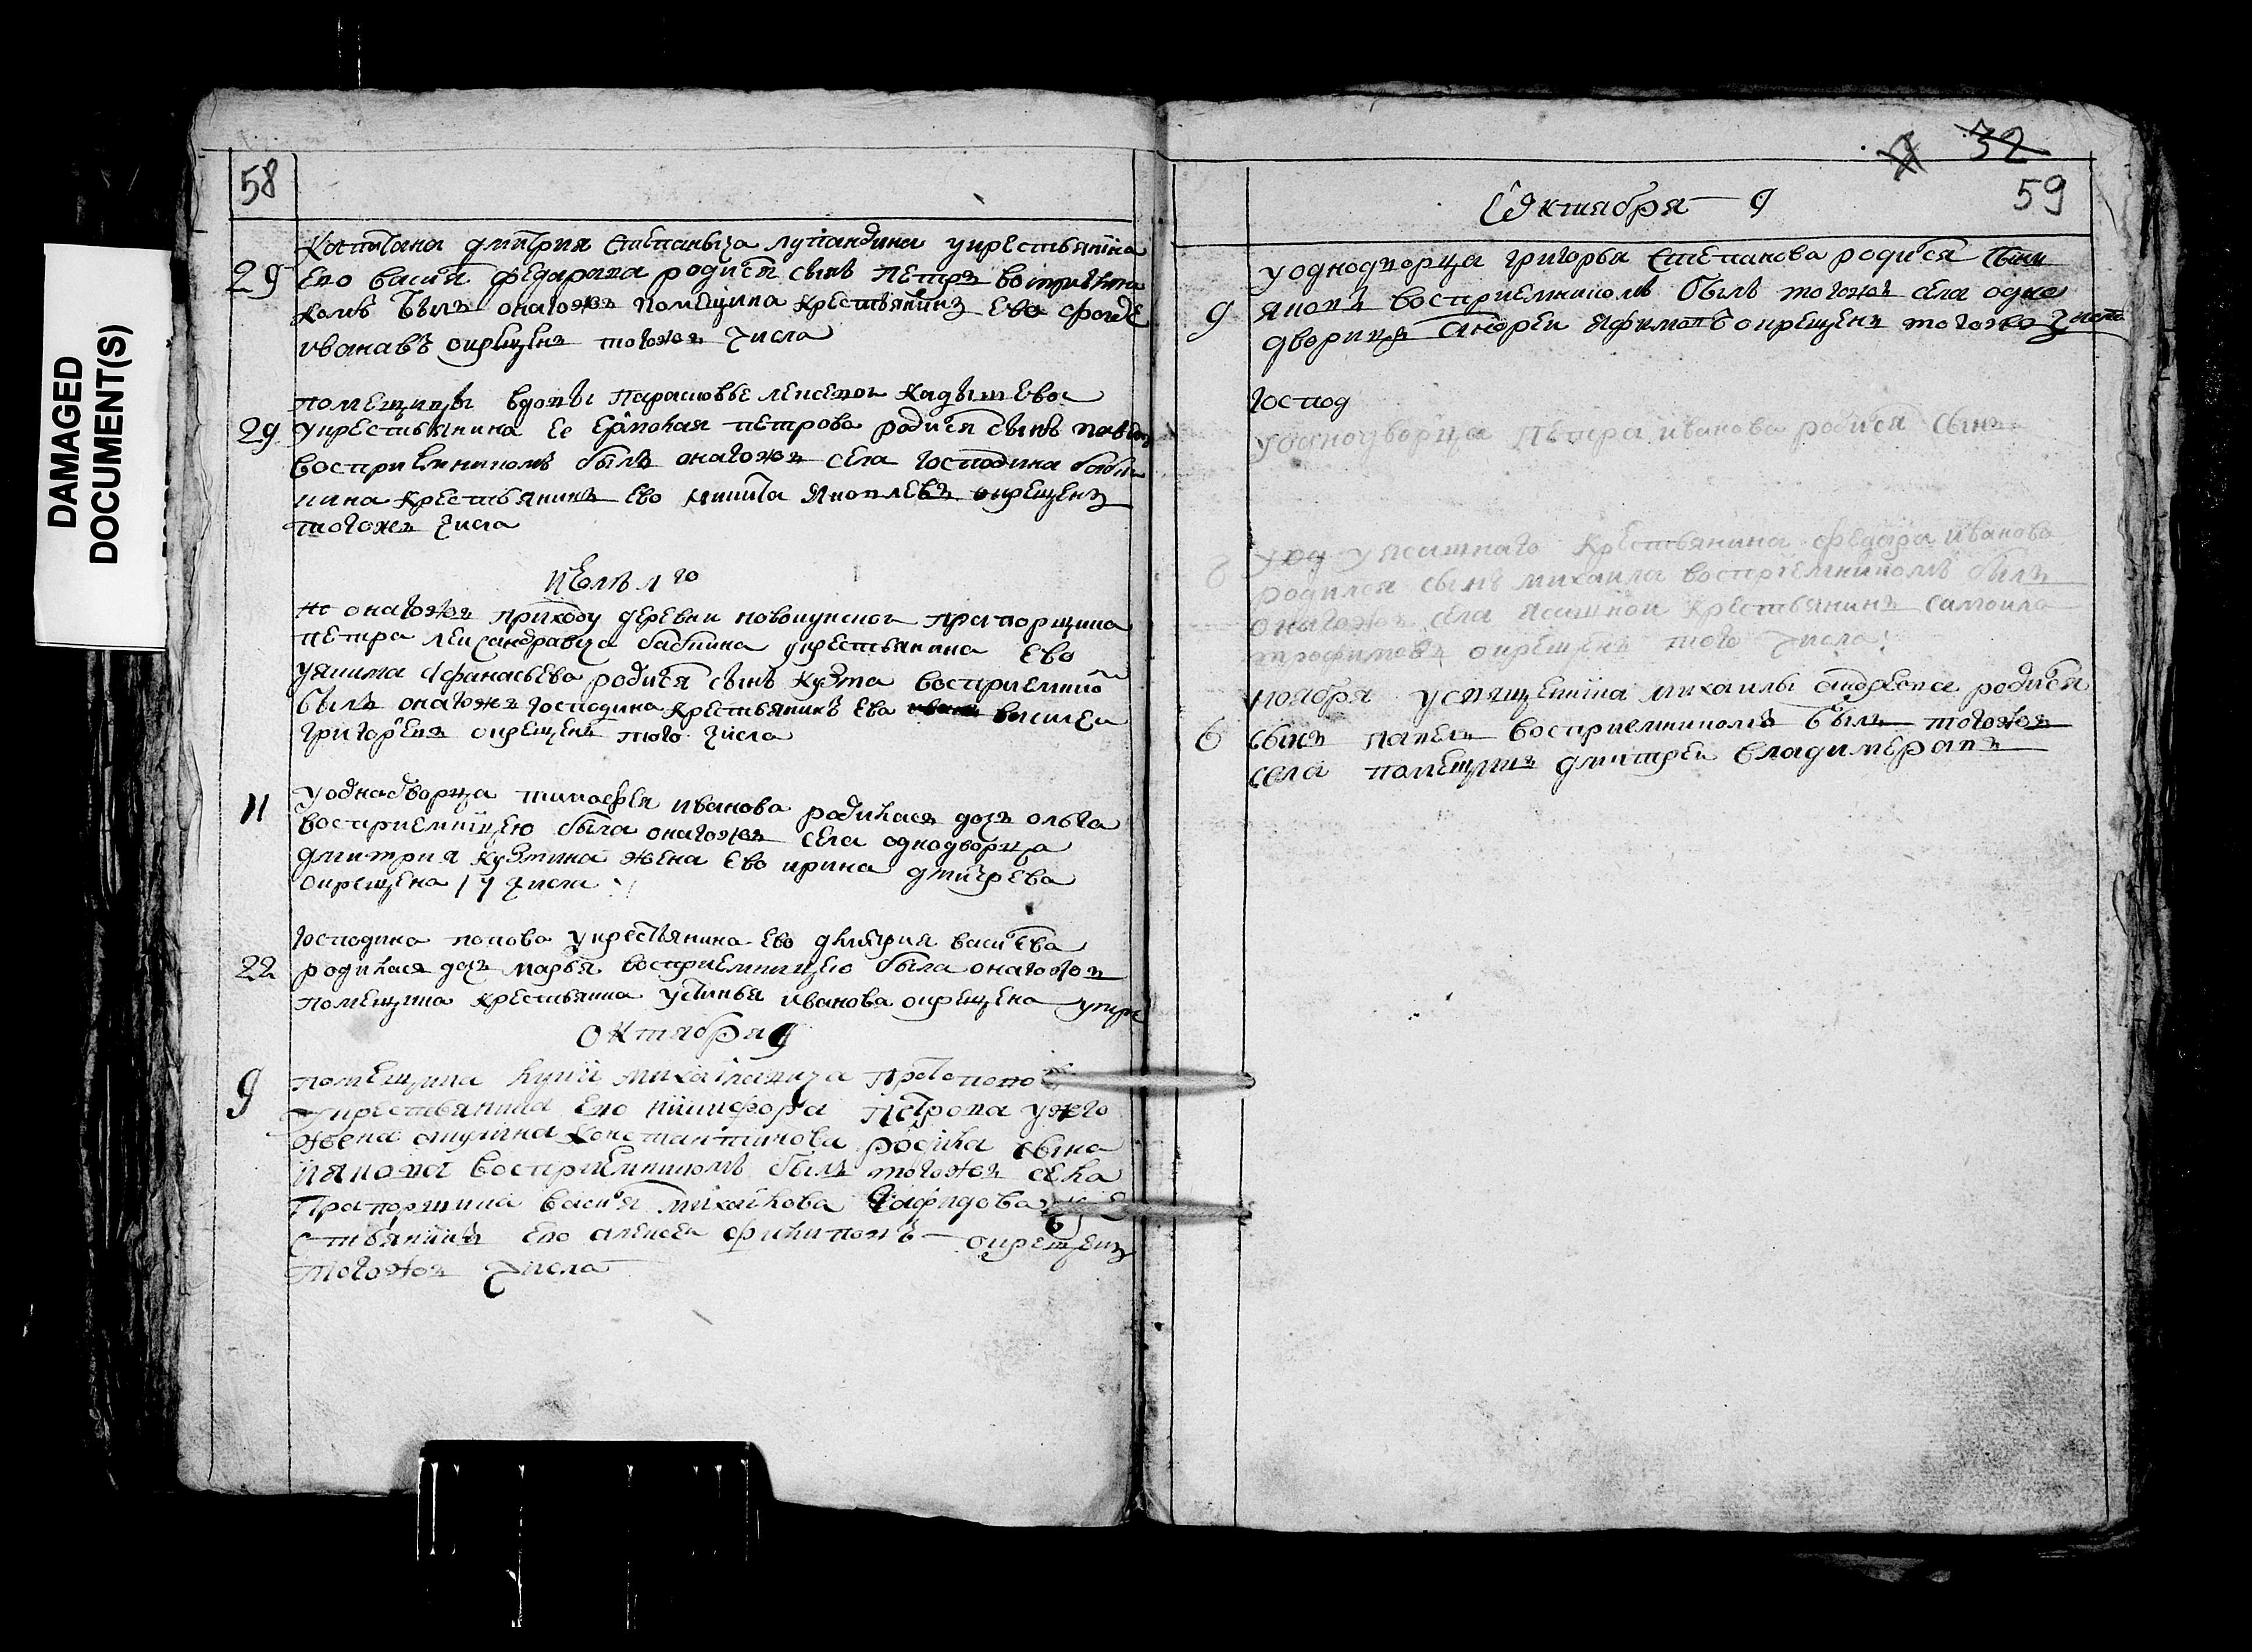 DAMAGED
DOCUMENT(S)
58
капитана дмитрия степаныча лупандина укрестьянина
29 ево васиⷧя федарава родиⷧся сынъ петръ восприемни
комъ былъ онагожъ помещика крестьянинъ ево
ивановъ окрещенъ тогожъ числа
помещицы вдовы парасковье
29 укрестьянина ее петрова родиⷧся сынъ
восприемникомъ былъ онагожъ села господина баби
кина крестьянинъ ево никита яковлевъ окрещенъ
тогожъ числа
июля 1го
онагожъ приходу деревни прапорщика
петра лександравича бабкина укрестьянина ево
уякима афанасьева родиⷧся сынъ кузма восприемнико
былъ онагожъ господина крестьянинъ ево василеи
григоревъ окрещенъ того числа
11 уоднадворца тимофея иванова родилась дочь ольга
восприемницею была онагожъ села однодворца
дмитрия кузмина жена ево ирина дмитрева
окрещена 17 числа
господина попова укрестьянина ево дмитрия василева
22 родилась дочь марья восприемницею была онагожъ
помещика крестьянка устинья иванова окрещена
октября 9
помещика михаилавича протопопо
9 укрестьянина ево никифора петрова унего
жена акулина константинова родила сына
иякова восприемникомъ былъ тогожъ села
прапорщика васиⷧя михаилова кре
стьянинъ ево алексеи филиповъ окрещенъ
тогожъ числа
32
59
Октября 9
уоднодворца григорья степанова родиⷧся сынъ
9 яковъ восприемникомъ былъ тогожъ села одно
дворицъ андреи яфимовъ окрещенъ тогожъ числа
господ
уоднодворца петра иванова родиⷧся сынъ
уод уясашнаго крестьянина федара иванова
6 родился сынъ михаила восприемникомъ былъ
онагожъ села ясашнои крестьянинъ самоила
трофимовъ окрещенъ того числа
ноября усвященика михаилы андреева родиⷧся
6 сынъ павелъ восприемникомъ былъ тогожъ
села помещикъ дмитреи владимеравъ